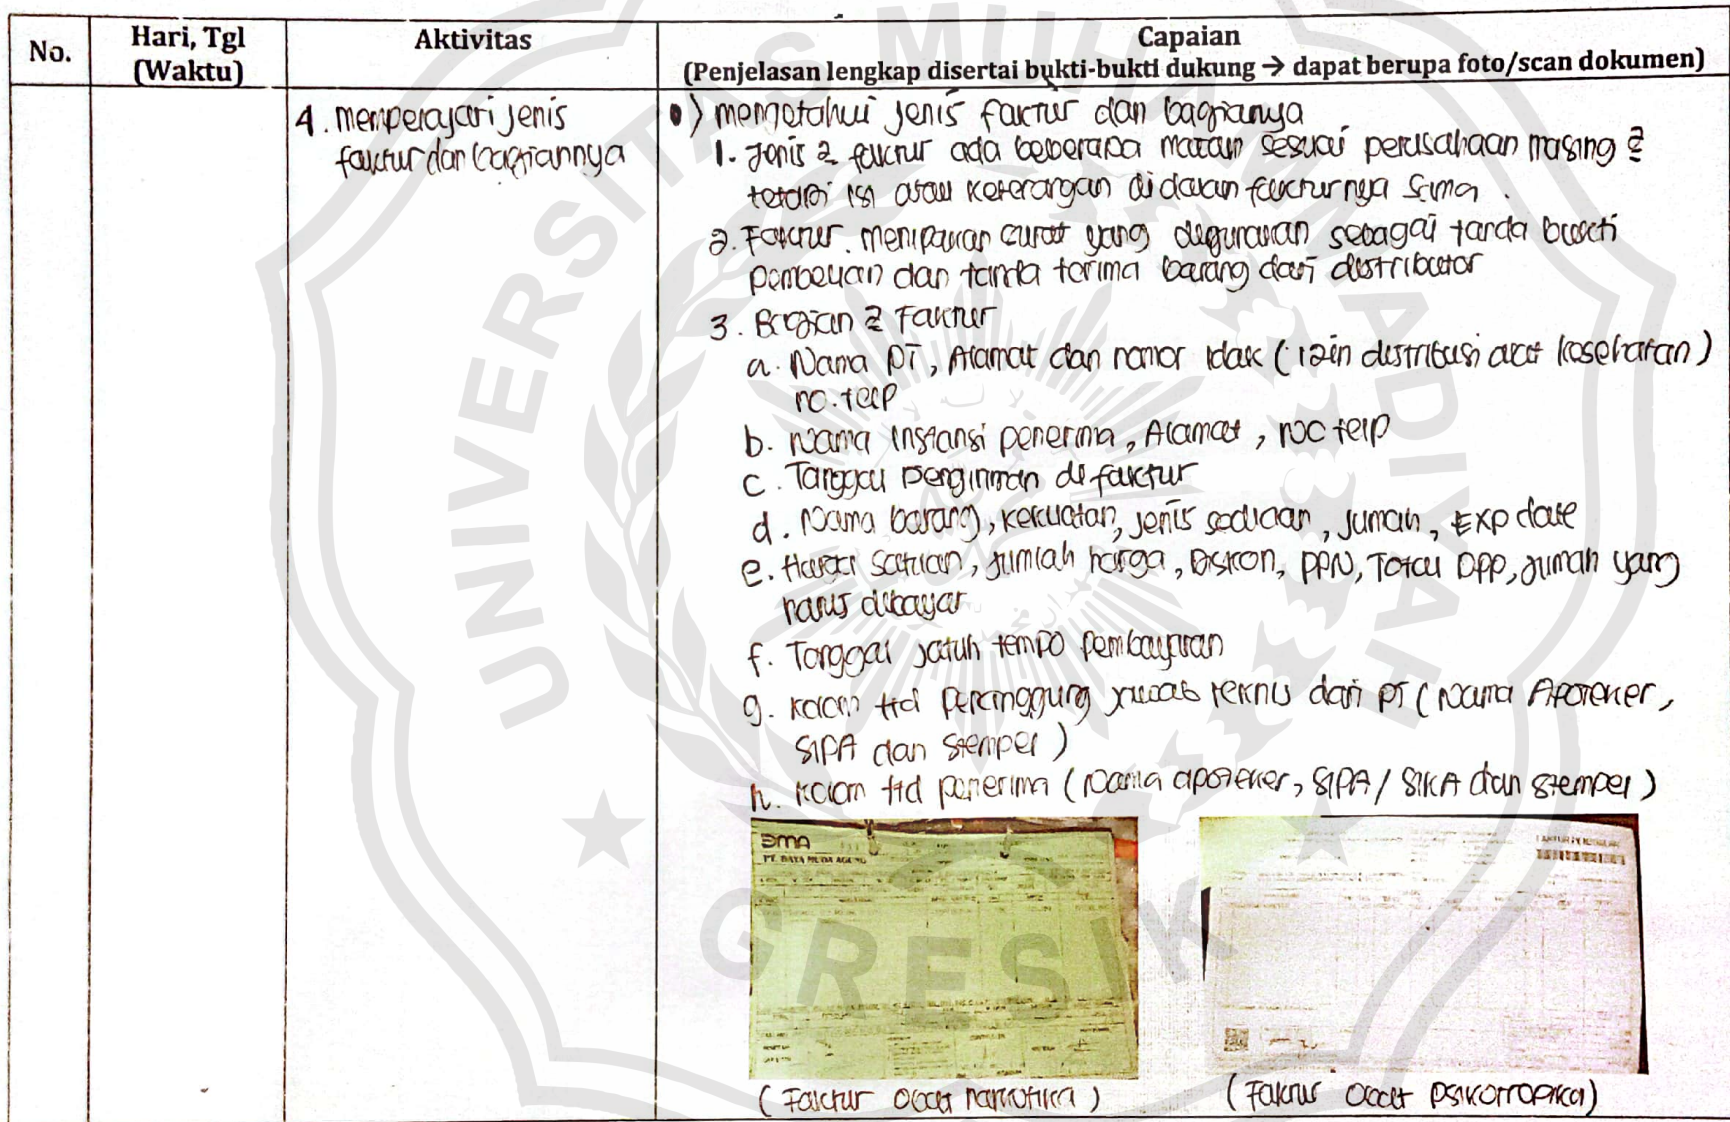 No.
Hari, Tgl
(Waktu)
Aktivitas
Capaian
(Penjelasan lengkap disertai bukti-bukti dukung → dapat berupa foto/scan dokumen)
4. mempelajari jenis
faktur dan bagiannya
•) mengetahui jenis faktur dan bagianya
1. Jenis 2 faktur ada beberapa macam sesuai perusahaan masing 2
tetapi isi atau keterangan di dalam fakturnya sama.
2. Faktur merupakan surat yang digunakan sebagai tanda bukti
pembelian dan tanda terima barang dari distributor
3. Bagian 2 Faktur
a. Nama PT, Alamat dan nomor Idak (izin distribusi alat kesehatan)
no. telp
b. Nama Instansi penerima, Alamat, no telp
c. Tanggal pengiriman di faktur
d. Nama barang, kekuatan, jenis sediaan, Jumlah, Exp date
e. Harga satuan, jumlah harga, Diskon, PPN, Total DPP, Jumlah yang
harus dibayar
f. Tanggal jatuh tempo pembayaran
g. kolom ttd penanggung jawab teknis dari PT (Nama Apoteker,
SIPA dan stempel)
h. kolom ttd penerima (Nama apoteker, SIPA / SIKA dan stempel)
DMA
PT. DAYA MUDA AGUNG
(Faktur obat narkotika)
(Faktur obat psikotropika)
UNIVERSITAS MUHAMMADIYAH
GRESIK